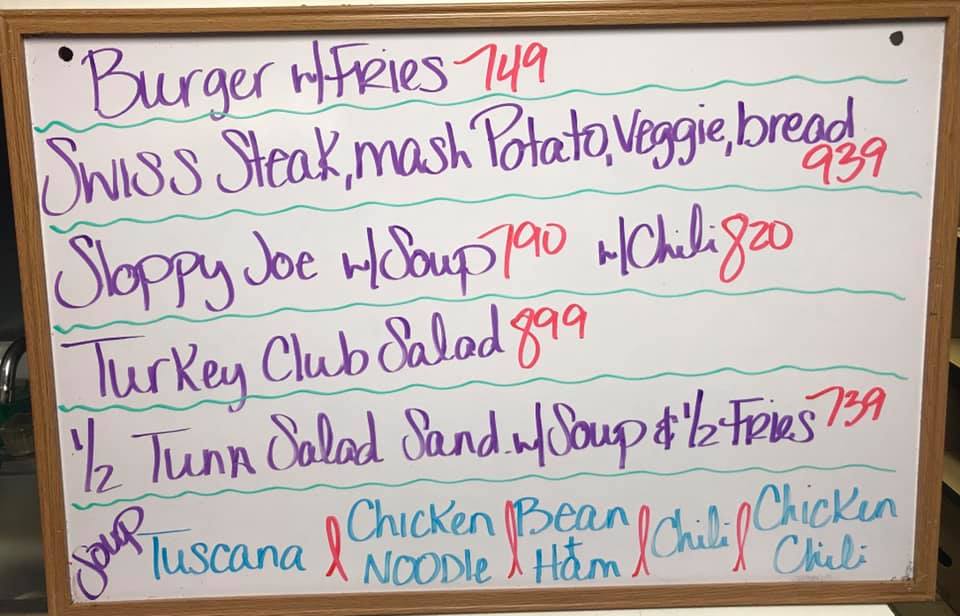 Burger w/Fries 749
Swiss Steak, mash Potato, Veggie, bread
939
Sloppy Joe w/Soup 790 w/Chili 820
Turkey Club Salad 899
1/2 Tuna Salad Sand. w/Soup & 1/2 Fries 739
Soup Tuscana Chicken Noodle Bean & Ham Chili Chicken Chili